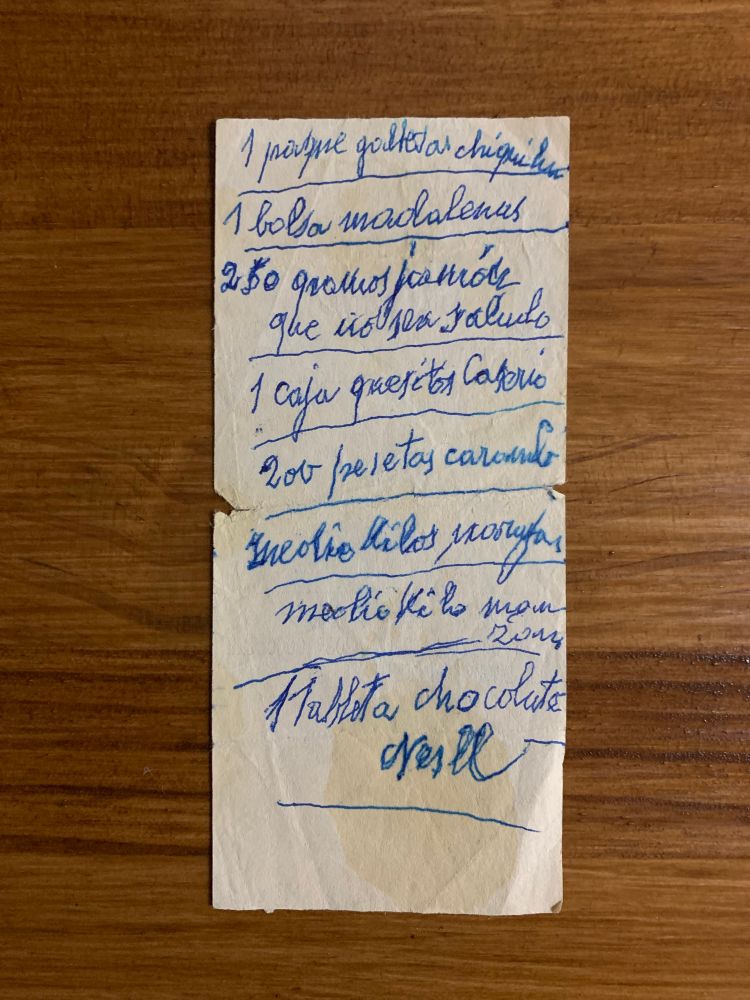 1 paque galletas chiquilin
1 bolsa madalenas
250 gramos jamón
que no sea salado
1 caja quesitos Caserio
200 pesetas caramelo
medio kilos
medio kilo man
zana
1 Tableta chocolate
Nesll